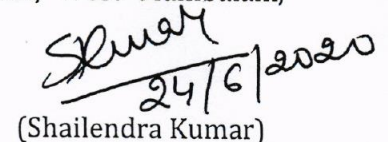 SKumar
24/6/2020
(Shailendra Kumar)